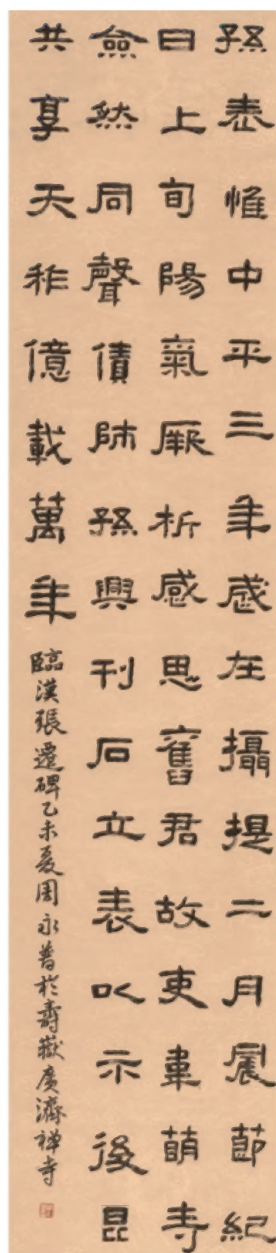 孫惟中平三年歲在攝提二月震節紀
日上旬陽氣厥析感思舊君故吏韋萌等
僉然同聲債師孫興刊石立表以示後昆
共享天祚億載萬年
臨漢張遷碑乙未夏周永普於壽嶽廣濟禪寺